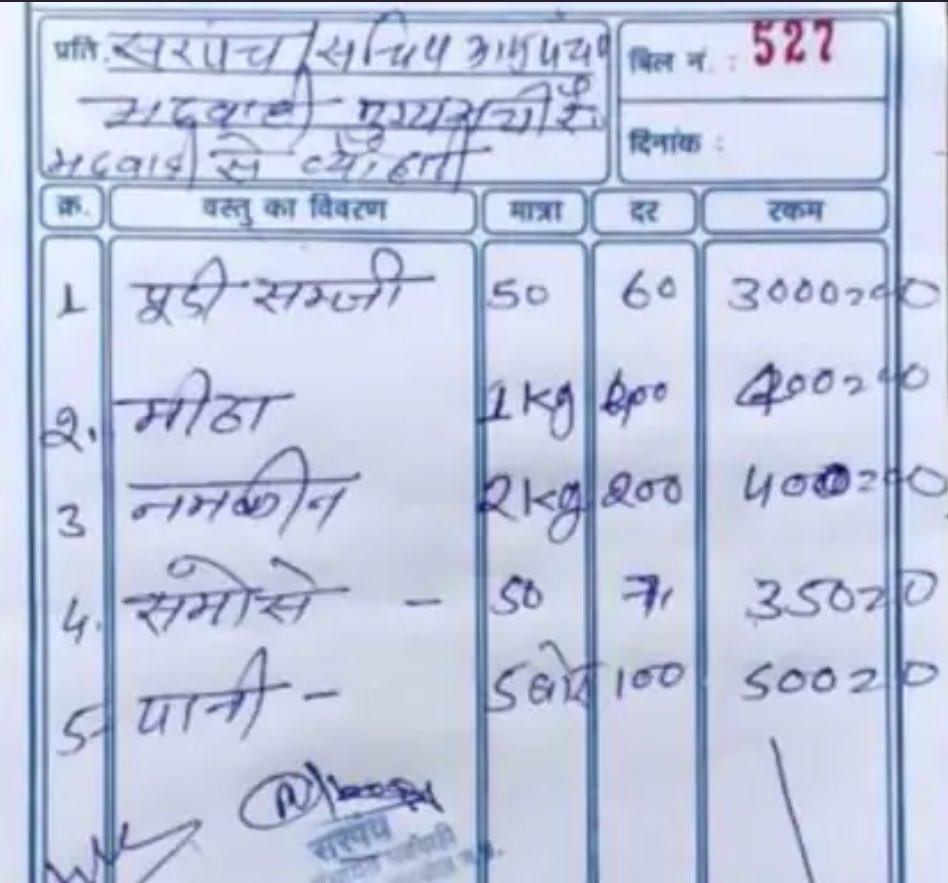 प्रति. सरपंच/सचिव ग्राम पंचा
भदवाही मुख्यमंत्री के
भदवाही से ब्यौहारी
बिल नं. : 527
दिनांक :
क्र. वस्तु का विवरण मात्रा दर रकम
1 पूडी सब्जी 50 60 3000=00
2. मीठा 1kg 400=00
3 नमकीन 2kg 200 400=00
4. समोसे - 50 7 350=0
5- पानी - 5 100 500=0
सरपंच